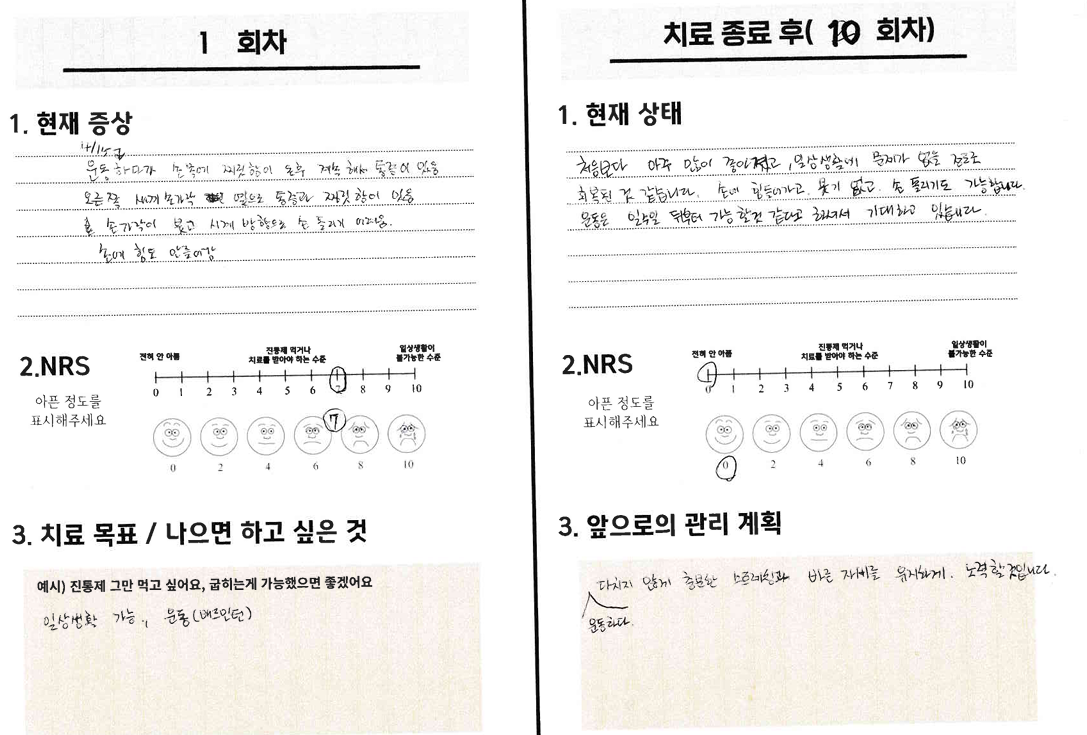 1 회차
1. 현재 증상
운동하다가 손목에 찌릿함이 오후 계속해서 통증이 있음
오른쪽 세게 손가락 옆으로 통증과 찌릿함이 있음
손가락이 붓고 시계 방향으로 손 돌리기 어려움.
손에 힘도 안들어감
2.NRS
아픈 정도를
표시해주세요
전혀 안 아픔
진통제 먹거나
치료를 받아야 하는 수준
일상생활이
불가능한 수준
0 1 2 3 4 5 6 7 8 9 10
7
0 2 4 6 8 10
3. 치료 목표 / 나으면 하고 싶은 것
예시) 진통제 그만 먹고 싶어요, 굽히는게 가능했으면 좋겠어요
일상생활 가능, 운동(배드민턴)
치료 종료 후( 10 회차)
1. 현재 상태
처음보다 아주 많이 좋아졌고, 일상생활에 문제가 없을 정도로
회복된 것 같습니다. 손에 힘들어가고. 붓기 없고. 손 돌리기도 가능합니다.
운동은 일주일 뒤부터 가능할것 같다고 하셔서 기대하고 있습니다.
2.NRS
아픈 정도를
표시해주세요
전혀 안 아픔
진통제 먹거나
치료를 받아야 하는 수준
일상생활이
불가능한 수준
0 1 2 3 4 5 6 7 8 9 10
0 2 4 6 8 10
3. 앞으로의 관리 계획
다치지 않게 충분한 스트레칭과 바른 자세를 유지하게. 노력할것입니다.
운동하다.